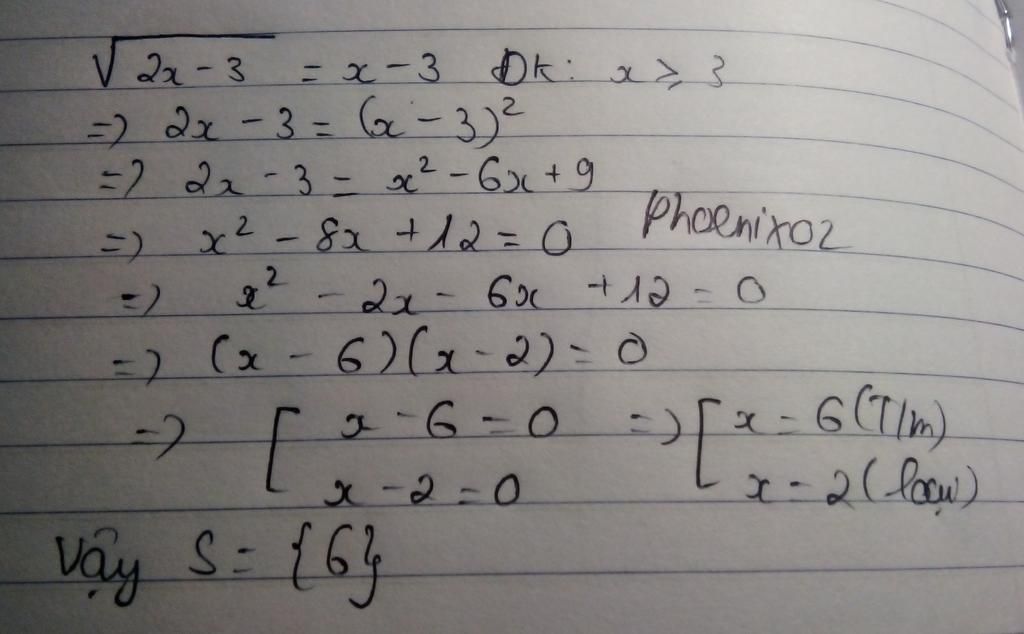 √2x - 3 = x - 3 ĐK: x ≥ 3
=> 2x - 3 = (x - 3)²
=> 2x - 3 = x² - 6x + 9
=> x² - 8x + 12 = 0
Phoenix02
=> x² - 2x - 6x + 12 = 0
=> (x - 6)(x - 2) = 0
=> [ x - 6 = 0 => [ x = 6 (T/m)
x - 2 = 0 x = 2 (loại)
Vậy S = {6}